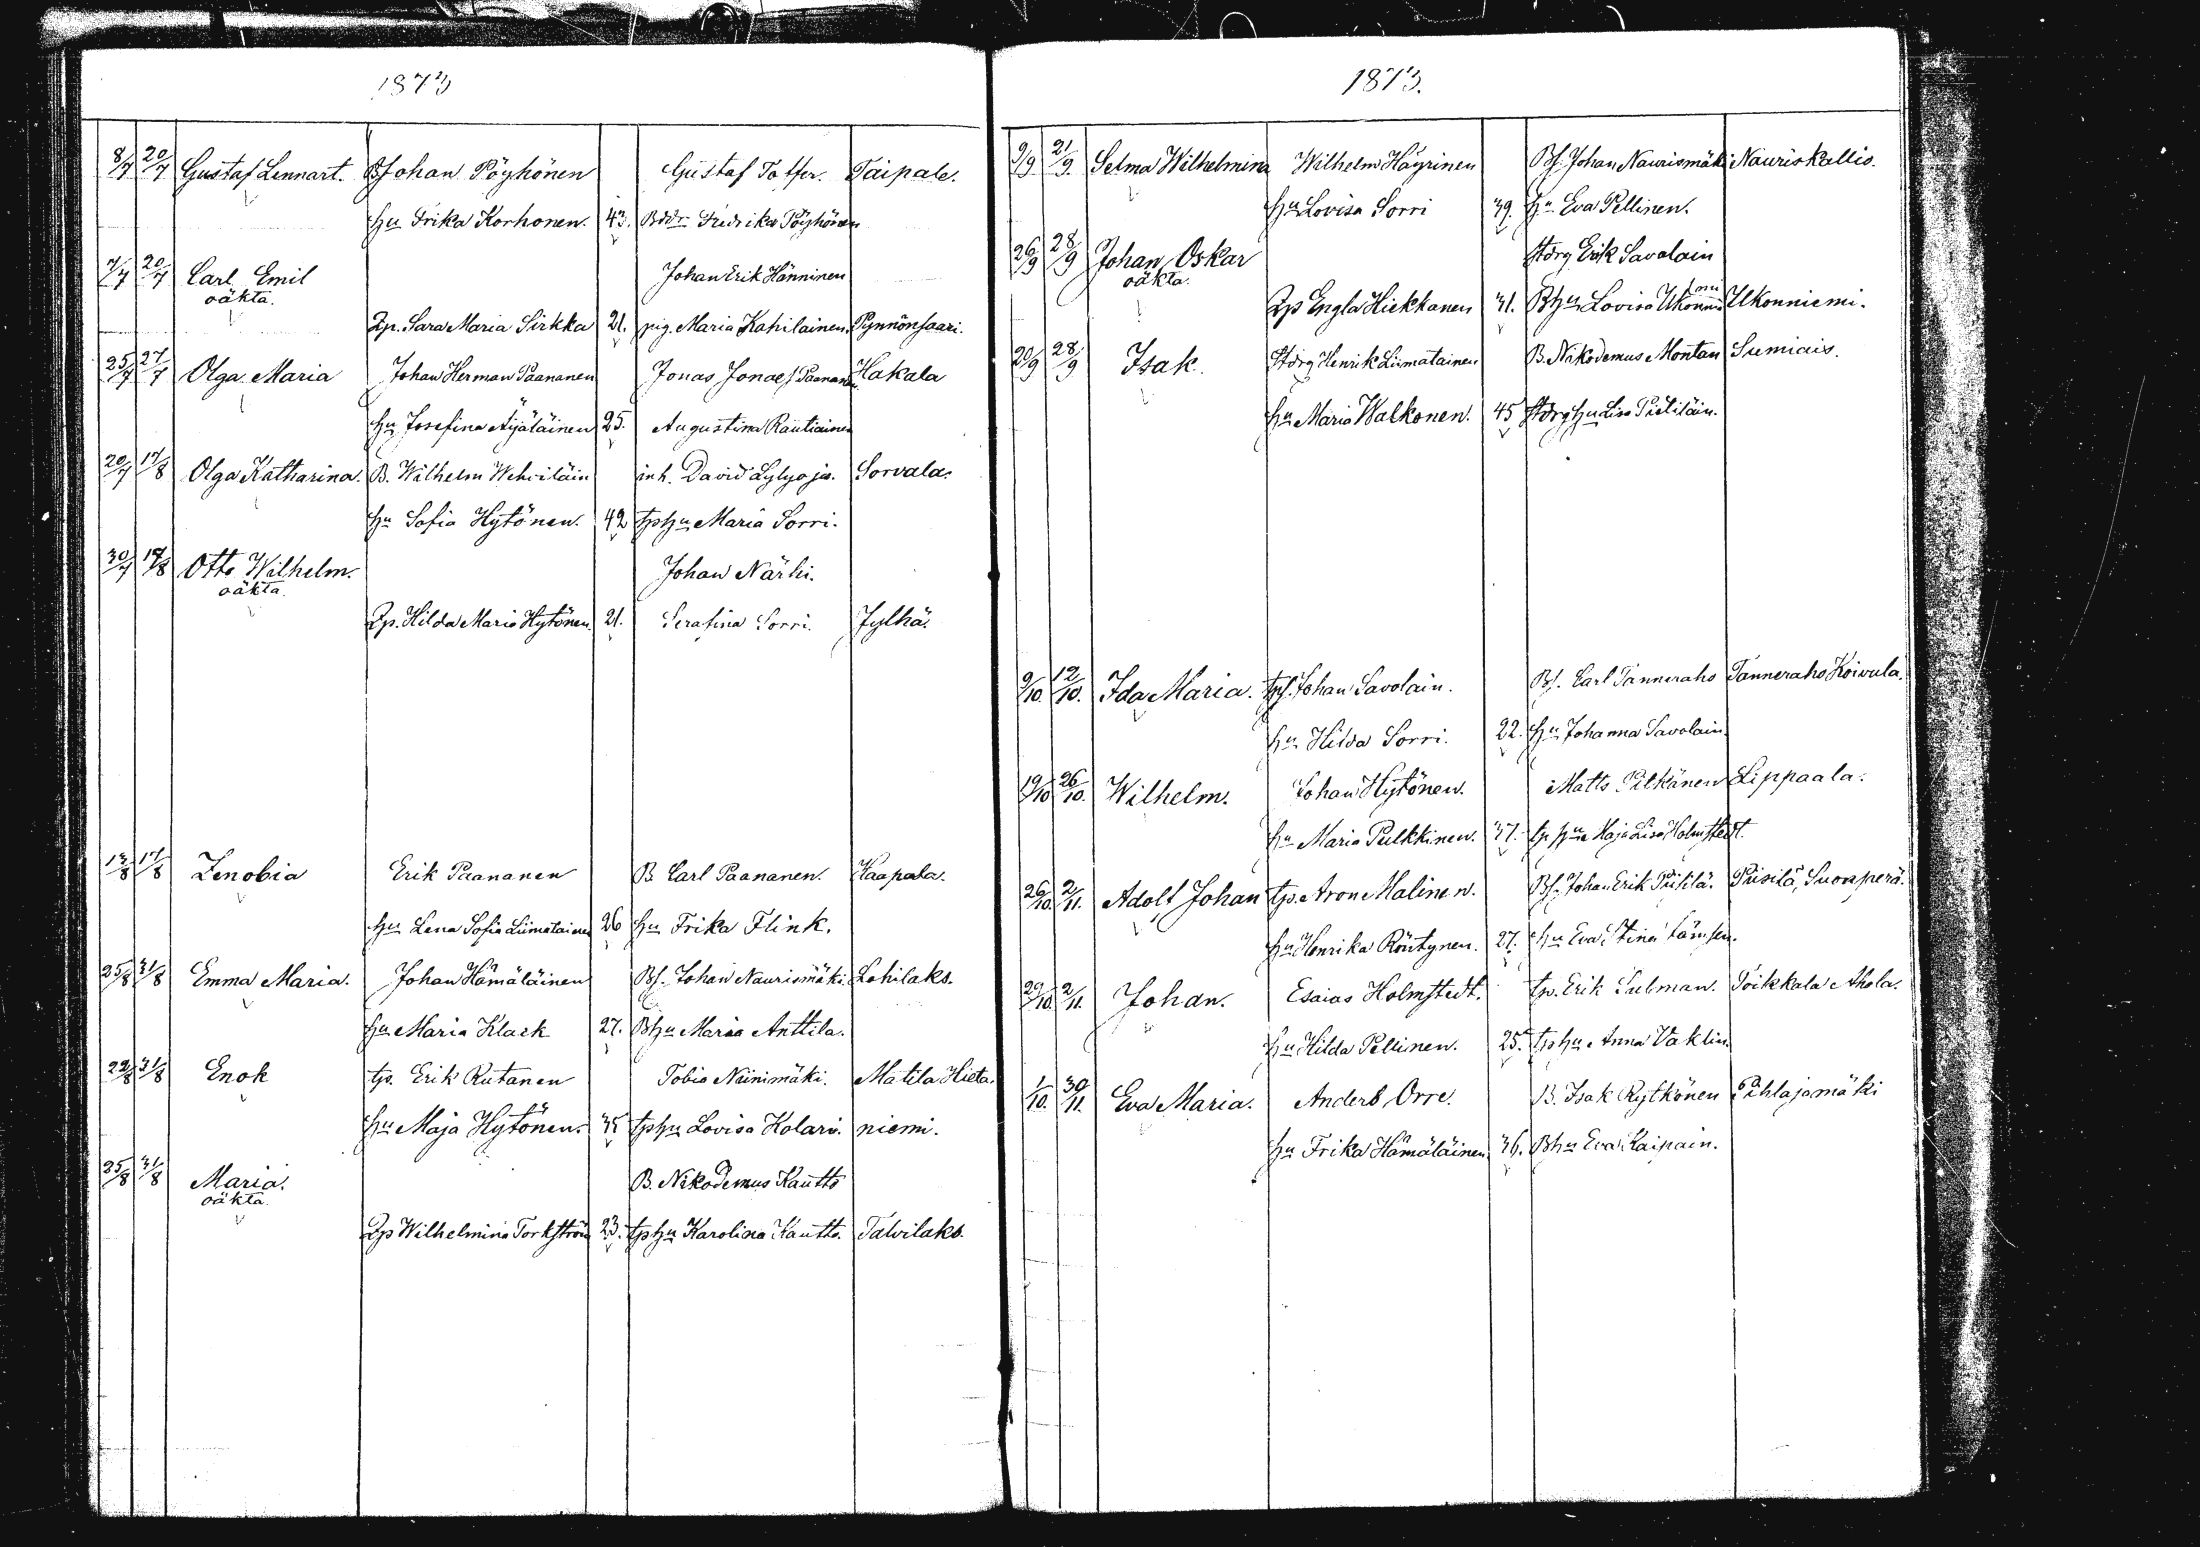 1873
8/7 20/7 Gustaf Lennart. Johan Pöyhönen Gustaf Taipale.
hu Frika Korhonen. 43. Fredrika Pöyhönen
7/7 20/7 Carl Emil Johan Erik Hänninen
oäkta.
Zp. Sara Maria Sirkka 21. pig. Maria Kahilainen. Pynnönsaari.
25/7 27/7 Olga Maria Johan Herman Paananen Jonas Jonaes. Paananen Hakala
hu Josefina Äijäläinen 25. Augustina Rautiainen
20/7 17/8 Olga Katharina. B. Wilhelm Wehviläin inh. David Lylyoja. Sorvala.
hu Sofia Hytönen. 42 tphu Maria Sorri.
30/7 Otto Wilhelm. Johan Närhi.
oäkta.
Zp. Hilda Maria Hytönen. 21. Serafina Sorri. Jylhä.
13/8 17/8 Zenobia Erik Paananen B. Carl Paananen. Kaapala.
hu Lena Sofia Liimatainen 26 hu Frika Flink.
25/8 31/8 Emma Maria. Johan Hämäläinen Bs. Johan Naurismäki. Lohilaks.
hu Maria Klack 27. Bhu Maria Anttila.
22/8 31/8 Enok tp. Erik Rutanen Tobias Niinimäki. Matila Hieta-
hu Maja Hytönen. 35 tphu Lovisa Kolari. niemi.
25/8 31/8 Maria. B. Nikodemus Kautto
oäkta.
Zp Wilhelmina Torkström 23. tphu Karolina Kautto. Talvilaks.
1873.
9/9 21/9. Selma Wilhelmina Wilhelm Häyrinen Bs. Johan Naurismäki Nauriskallio.
hu Lovisa Sorri 39. hu Eva Pellinen.
26/9 28/9 Johan Oskar Erik Savolain
oäkta.
Zp Engla Hiekkanen 31. Bhu Lovisa Ukonniemi Ukonniemi.
20/9 28/9 Isak. Henrik Liimatainen B. Nikodemus Montan Sumiais.
hu Maria Walkonen. 45 hu Lisa Pietiläin.
9/10. 12/10. Ida Maria. tps. Johan Savolain. Bs. Carl Tanneraho Tanneraho, Koivula.
hu Hilda Sorri. 22. hu Johanna Savolain.
19/10 26/10. Wilhelm. Johan Hytönen. Matts Pitkänen Lippaala.
hu Maria Pulkkinen. 37. tp hu Maja Lisa Holmstedt.
26/10. 2/11. Adolf Johan tp. Aron Malinen. Bs. Johan Erik Piisilä. Piisilä, Suosperä.
hu Henrika Röntynen. 27. hu Eva Stina Tämsen.
29/10. 2/11. Johan. Esaias Holmstedt. tp. Erik Subman. Poikkala Ahola.
hu Hilda Pellinen. 25. tphu Anna Vaklin.
1/10. 30/11. Eva Maria. Anders Orre. B. Isak Rytkönen Pihlajamäki
hu Frika Hämäläinen 36. Bhu Eva Kaipain.